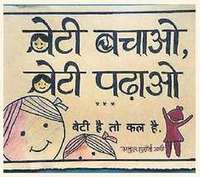 बेटी बचाओ,
बेटी पढ़ाओ
बेटी है तो कल है.